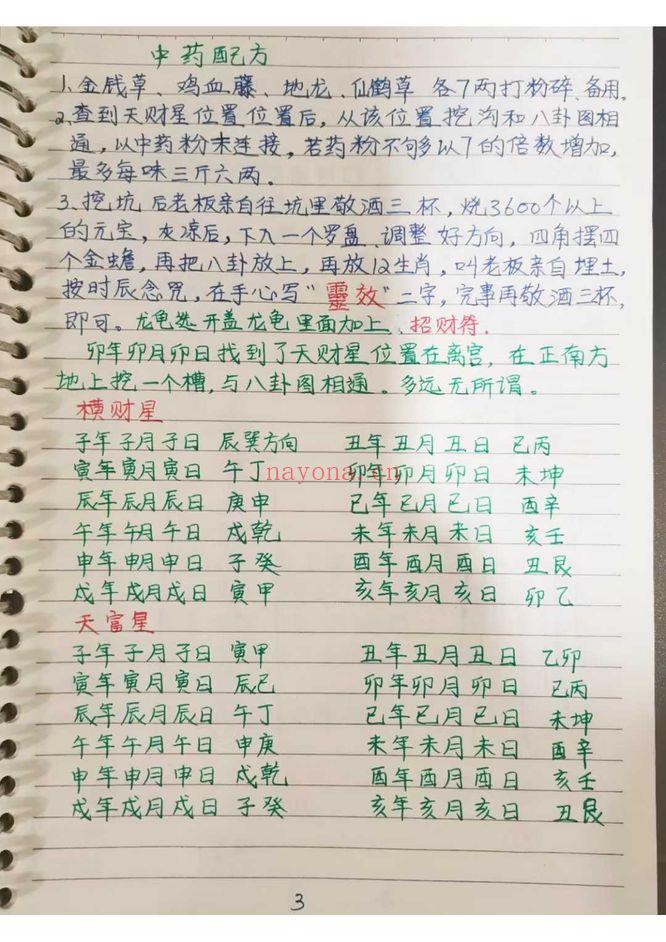 中药配方
1、金钱草、鸡血藤、地龙、仙鹤草 各7两打粉碎、备用。
2、查到天财星位置位置后，从该位置挖沟和八卦图相
通，以中药粉末连接，若药粉不句多以7的倍数增加，
最多每味三斤六两。
3、挖坑后老板亲自往坑里敬酒三杯，烧3600个以上
的元宝，灰凉后，下入一个罗盘、调整好方向，四角摆四
个金蟾，再把八卦放上，再放12生肖，叫老板亲自埋土，
按时辰念咒，在手心写“靈效”二字，完事再敬酒三杯，
即可。龙龟选开盖龙龟里面加上、招财符.
卯年卯月卯日找到了天财星位置在离宫，在正南方
地上挖一个槽，与八卦图相通。多远无所谓。
横财星
子年子月子日 辰巽方向 丑年丑月丑日 巳丙
寅年寅月寅日 午丁 卯年卯月卯日 未坤
辰年辰月辰日 庚申 巳年巳月巳日 酉辛
午年午月午日 戌乾 未年未月未日 亥壬
申年申月申日 子癸 酉年酉月酉日 丑艮
戌年戌月戌日 寅甲 亥年亥月亥日 卯乙
天富星
子年子月子日 寅甲 丑年丑月丑日 乙卯
寅年寅月寅日 辰巳 卯年卯月卯日 巳丙
辰年辰月辰日 午丁 巳年巳月巳日 未坤
午年午月午日 申庚 未年未月未日 酉辛
申年申月申日 戌乾 酉年酉月酉日 亥壬
戌年戌月戌日 子癸 亥年亥月亥日 丑艮
3